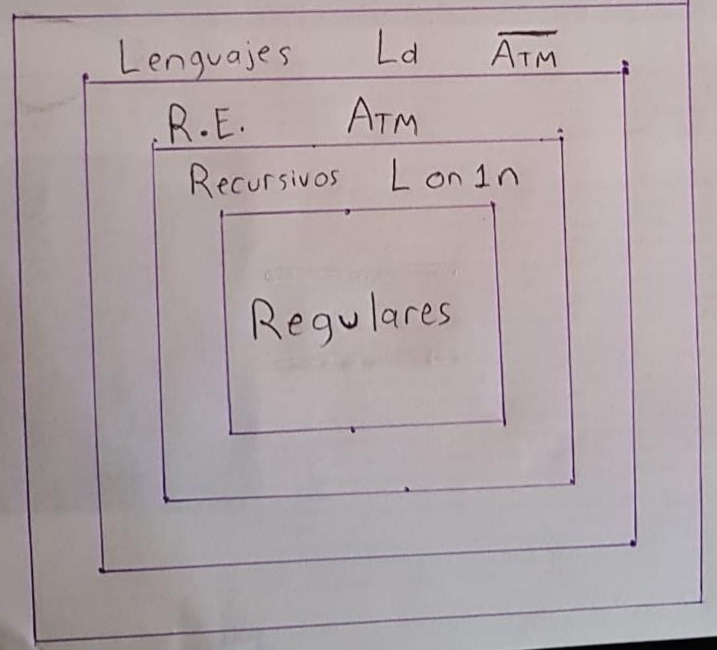 Lenguajes Ld A̅T̅M̅
R.E. ATM
Recursivos L on1n
Regulares